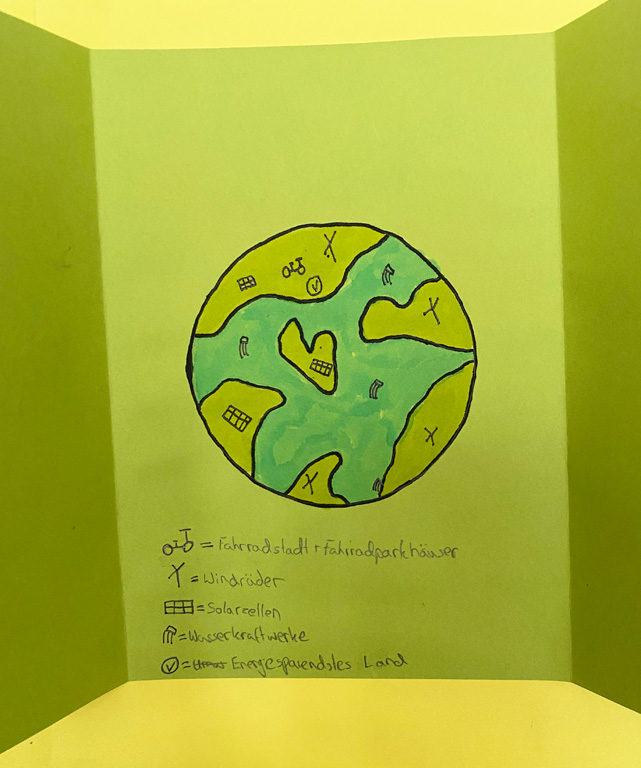 = Fahrradstadt + Fahrradparkhäuser
= Windräder
= Solarcellen
= Wasserkraftwerke
= Energiesparendstes Land